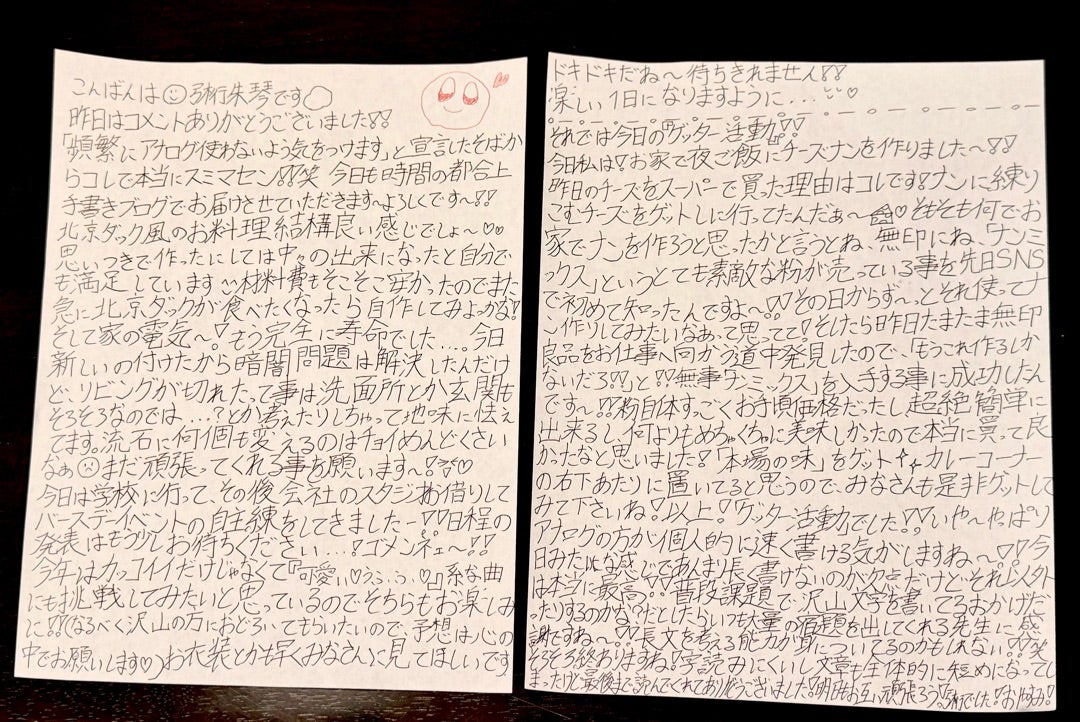 こんばんは☺弥衍朱琴です
昨日はコメントありがとうございました!!
「頻繁にアナログ使わないよう気をつけます」と宣言したそばか
らコレで本当にスミマセン!!笑 今日も時間の都合上
手書きブログでお届けさせていただきます~よろしくです~!!
北京ダック風のお料理結構良い感じでしょ~♡♡
思いつきで作ったにしては中々の出来になったと自分で
も満足しています 材料費もそこそこ安かったのでまた
急に北京ダックが食べたくなったら自作してみよっかな!
そして家の電気~!もう完全に寿命でした...。今日
新しいの付けたから暗闇問題は解決したんだけ
ど、リビングが切れたって事は洗面所とか玄関も
そろそろなのでは...?とか考えたりしちゃって地味に怯え
てます。流石に何個も変えるのはチョイめんどくさい
なぁ☹まだ頑張ってくれる事を願います~!♡
今日は学校に行って、その後会社のスタジオお借りして
バースデーイベントの自主練をしてきました-!!日程の
発表はもう少しお待ちください...!ゴメンネェ~!!
今年はカッコイイだけじゃなくて『可愛い♡うふふ♡』系な曲
にも挑戦してみたいと思っているのでそちらもお楽しみ
に!!なるべく沢山の方におどろいてもらいたいので予想は心の
中でお願いします♡お衣装とかも早くみなさんに見てほしいです
ドキドキだね~待ちきれません!!
楽しい1日になりますように...♡
それでは今日の『ゲッター活動』!!
今日私は!お家で夜ご飯にチーズナンを作りました~!!
昨日のチーズをスーパーで買った理由はコレです!ナンに練り
こむチーズをゲットしに行ってたんだぁ~♡そもそも何でお
家でナンを作ろうと思ったかと言うとね、無印にね、「ナンミ
ックス」というとても素敵な粉が売っている事を先日SNS
で初めて知ったんですよ~!!その日からず~っとそれ使ってナ
ン作りしてみたいなあって思ってて!そしたら昨日たまたま無印
良品をお仕事へ向かう道中発見したので、「もうこれ作るしか
ないだろ!!」と!!無事ナンミックス」を入手する事に成功したん
です~!!粉自体すっごくお手頃価格だったし超絶簡単に
出来るし何よりもめちゃくちゃに美味しかったので本当に買って良
かったなと思いました!「本場の味」をゲット✨カレーコーナー
の右下あたりに置いてると思うので、みなさんも是非ゲットして
みて下さいね!以上!『ゲッター活動』でした!!いや~やっぱり
アナログの方が個人的に速く書ける気がしますね~!!今
日みたいな感じであんまり長く書けないのが欠点だけど、それ以外
は本当に最高!!普段課題で沢山文字を書いてるおかげだ
ったりするのかな?だとしたらいつも大量の宿題を出してくれる先生に感
謝ですね~!!長文を考える能力が身についてるのかもしれない!!笑
そろそろ終わりますね!字読みにくいし文章も全体的に短めになってし
まったけど最後まで読んでくれてありがとうございました!明日もお互い頑張ろう!弥衍でした!おやすみ!